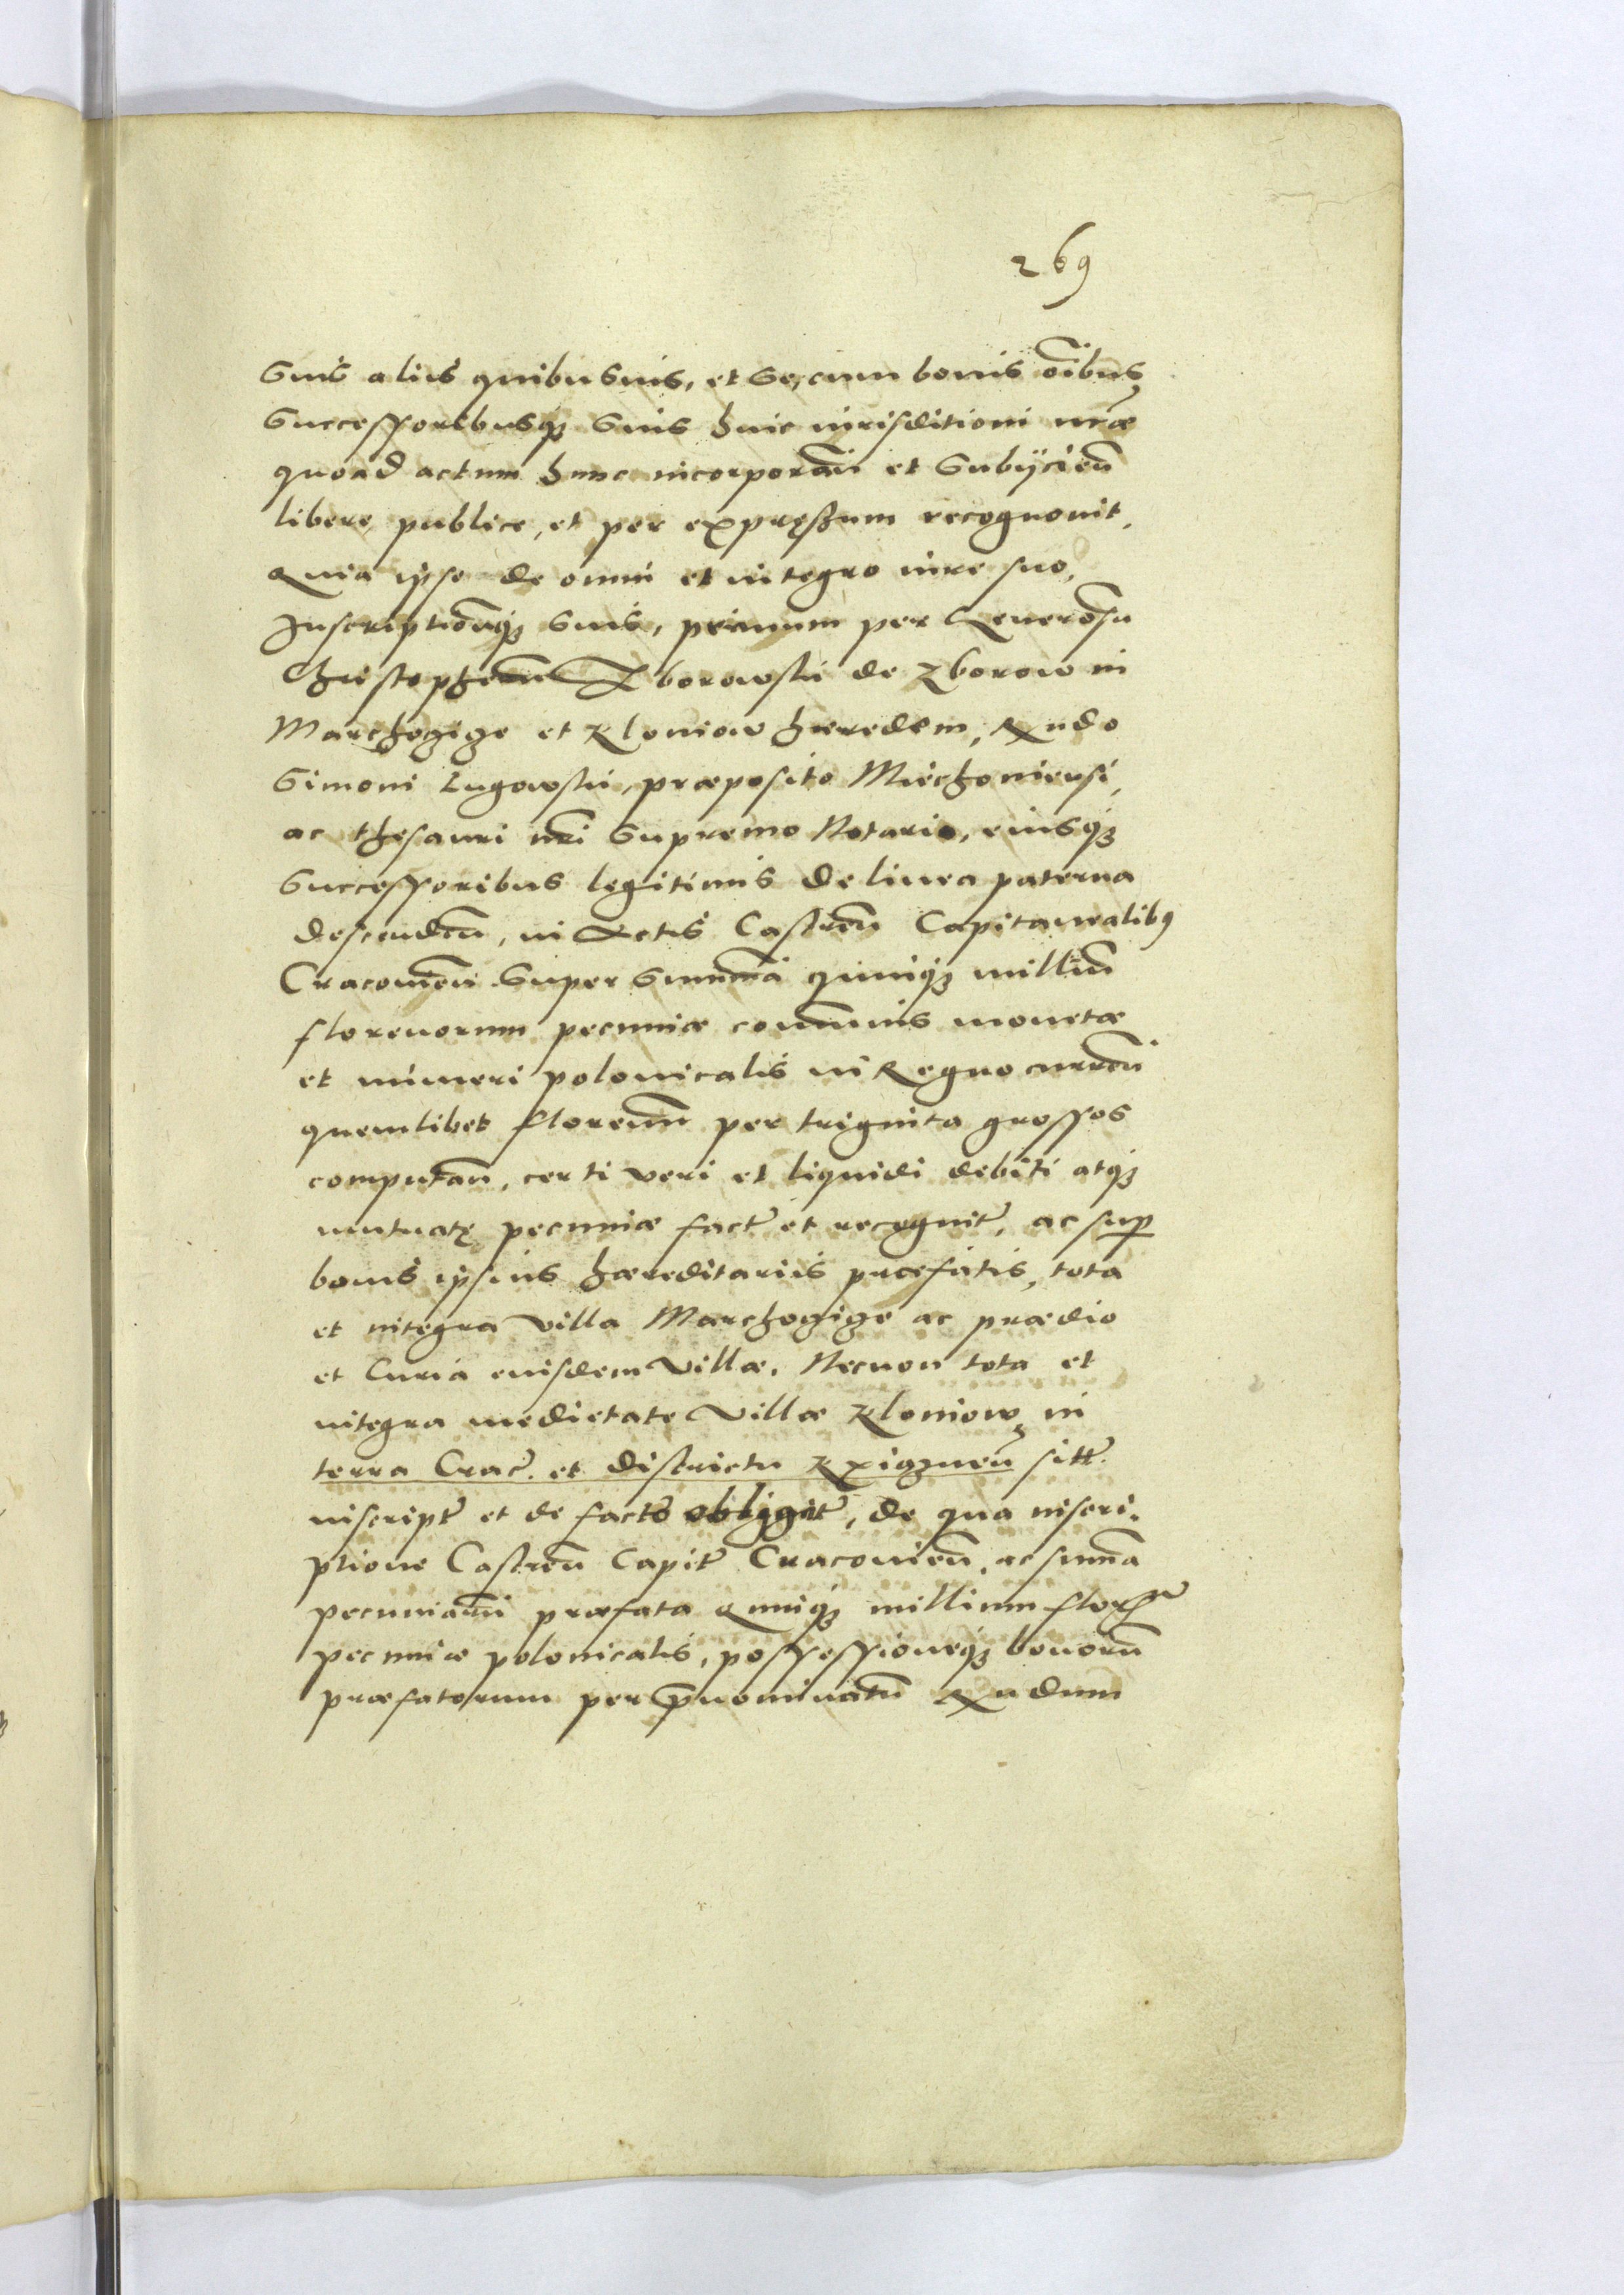 269
suis aliis quibusuis, et se, cum bonis oĩbus
successoribusq; suis huic iurisditioni nr̃æ
quoad actum hunc incorporañ et subijcieñ
libere, publice, et per expręßum recognouit,
Quia ipse de omni et integro iure suo,
Inscriptionũq; suis, primum per Generosũ
Christopherũ Zborowski de Zborow in
Marchogige et Kloniow hæredem, Rndo
Simoni Lugowski, præposito Miechouiensi,
ac thesauri nr̃i supremo Notario, eiusq;
successoribus legitimis de linea paterna
descendeñ, in Actis Castreñ Capitanealibꝰ
Cracouieñ super summa quinq; milliũ
florenorum pecuniæ cõmunis monetæ
et numeri polonicalis in Regno curreñ
quemlibet florenũ per triginta grossos
computañ, certi veri et liquidi debiti atq;
mutuatę pecuniæ fact̃ et recognit̃, ac sup
bonis ipsius hæreditariis præfatis, tota
et integra villa Marchogige ac prædio
et Curia eiusdem villæ. Necnon tota et
integra medietate villæ Kloniow in
terra Crac̃. et districtu Kxiqzneñ sitt̃.
inscript̃ et de facto obligat̃, de qua inscri-
ptione Castreñ Capit̃ Cracouieñ, ac sum̃a
pecuniarũ præfata Quinq; millium flor̃
pecuniæ polonicalis, possessioneq; bonorũ
præfatorum per prænominatũ Rndum